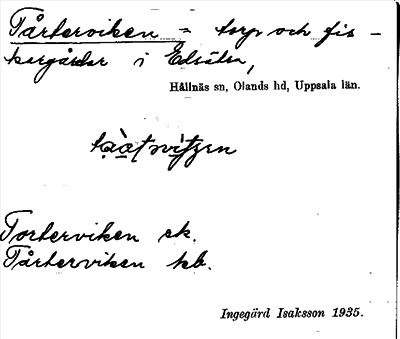 Tårterviken = torp och fis-
kargårdar i Edsäter,
Hållnäs sn, Olands hd, Uppsala län.
Torterviken ek.
Tårterviken kb.
Ingegärd Isaksson 1935.